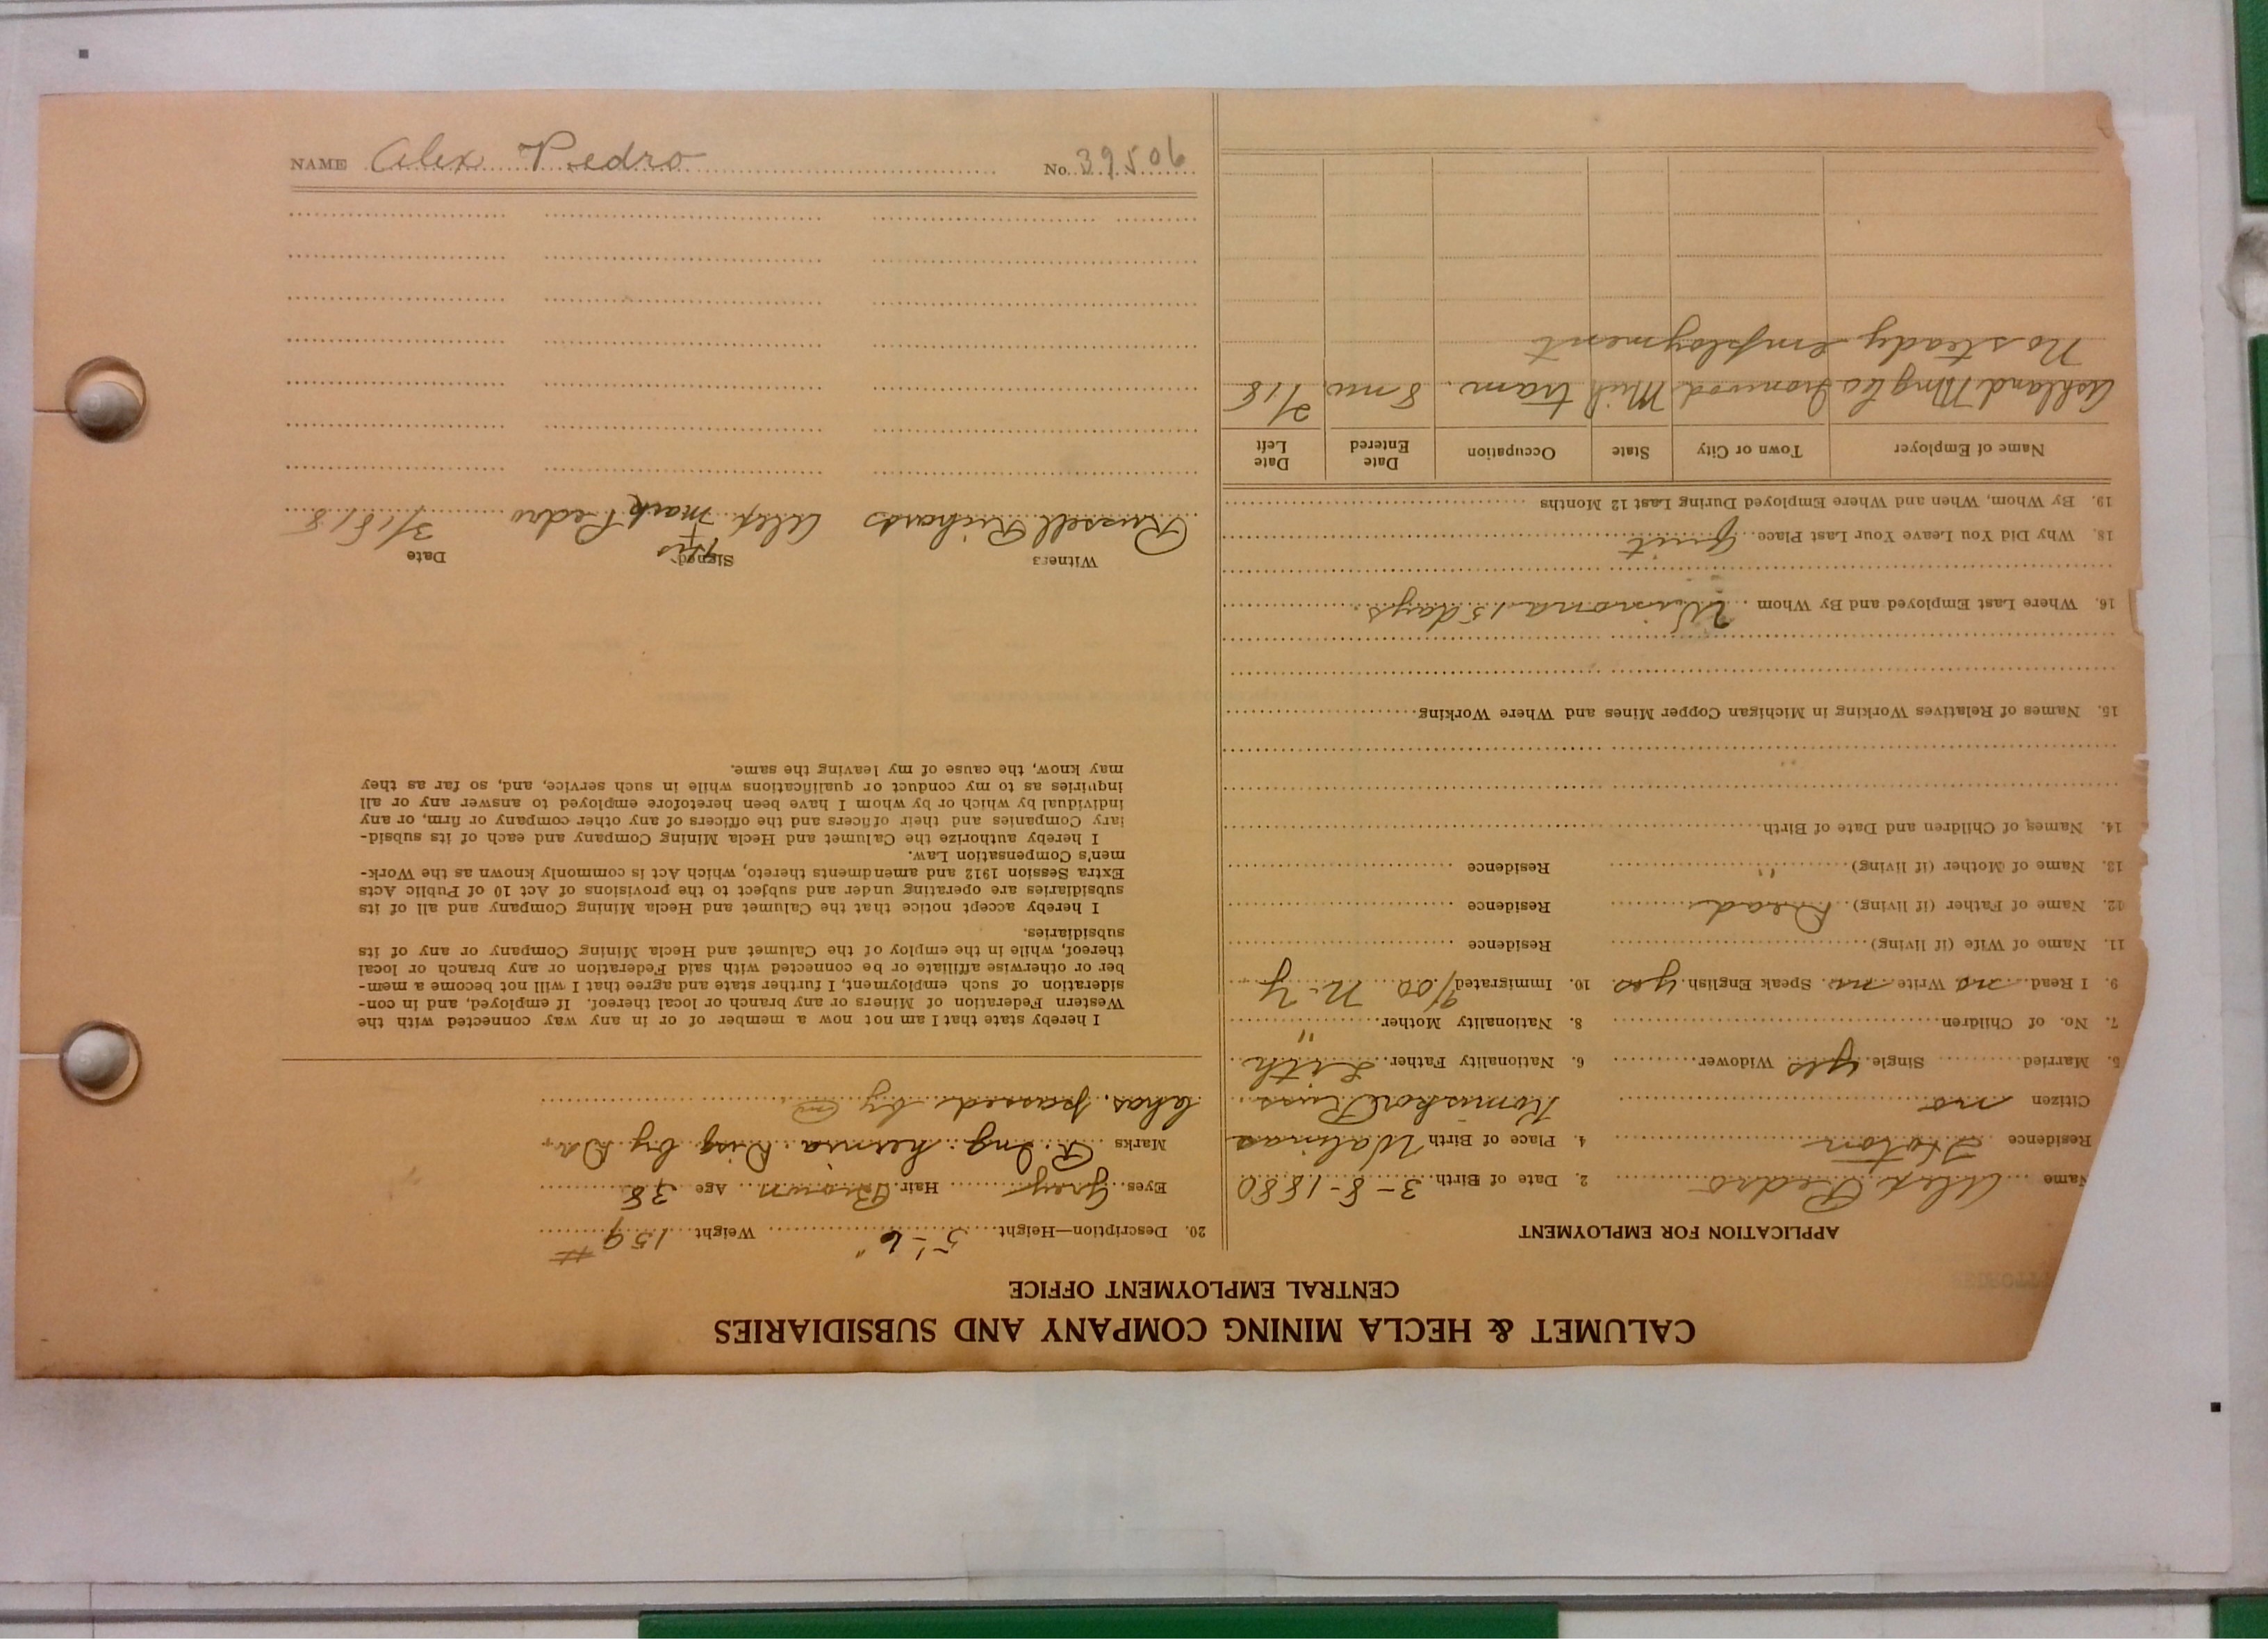 CALUMET & HECLA MINING COMPANY AND SUBSIDIARIES
CENTRAL EMPLOYMENT OFFICE
APPLICATION FOR EMPLOYMENT
Name Alex Pedro 2. Date of Birth 3-8-1880
Residence 4. Place of Birth
Citizen no Russ
5. Married Single yes Widower 6. Nationality Father Lith
7. No. of Children 8. Nationality Mother "
9. I Read no Write no Speak English yes 10. Immigrated 9/00 N-Y
11. Name of Wife (if living) Residence
12. Name of Father (if living) Dead Residence
13. Name of Mother (if living) " Residence
14. Names of Children and Date of Birth
15. Names of Relatives Working in Michigan Copper Mines and Where Working
16. Where Last Employed and By Whom Winona 15 days
18. Why Did You Leave Your Last Place Quit
19. By Whom, When and Where Employed During Last 12 Months
Name of Employer Town or City State Occupation Date Entered Date Left
Ashland Mng Co Ironwood Mich tram 8 mo. 2/18
No steady employment
20. Description—Height 5'-6" Weight 159 #
Eyes Grey Hair Brown Age 38
Marks R. Ing. hernia Disg by Dr.
Chas. passed by
I hereby state that I am not now a member of or in any way connected with the
Western Federation of Miners or any branch or local thereof. If employed, and in con-
sideration of such employment, I further state and agree that I will not become a mem-
ber or otherwise affiliate or be connected with said Federation or any branch or local
thereof, while in the employ of the Calumet and Hecla Mining Company or any of its
subsidiaries.
I hereby accept notice that the Calumet and Hecla Mining Company and all of its
subsidiaries are operating under and subject to the provisions of Act 10 of Public Acts
Extra Session 1912 and amendments thereto, which Act is commonly known as the Work-
men's Compensation Law.
I hereby authorize the Calumet and Hecla Mining Company and each of its subsid-
iary Companies and their officers and the officers of any other company or firm, or any
individual by which or by whom I have been heretofore employed to answer any or all
inquiries as to my conduct or qualifications while in such service, and, so far as they
may know, the cause of my leaving the same.
Witness Signed Date
his
Russell Richards Alex + Pedro 3/18/18
mark
NAME Alex Pedro No. 39506